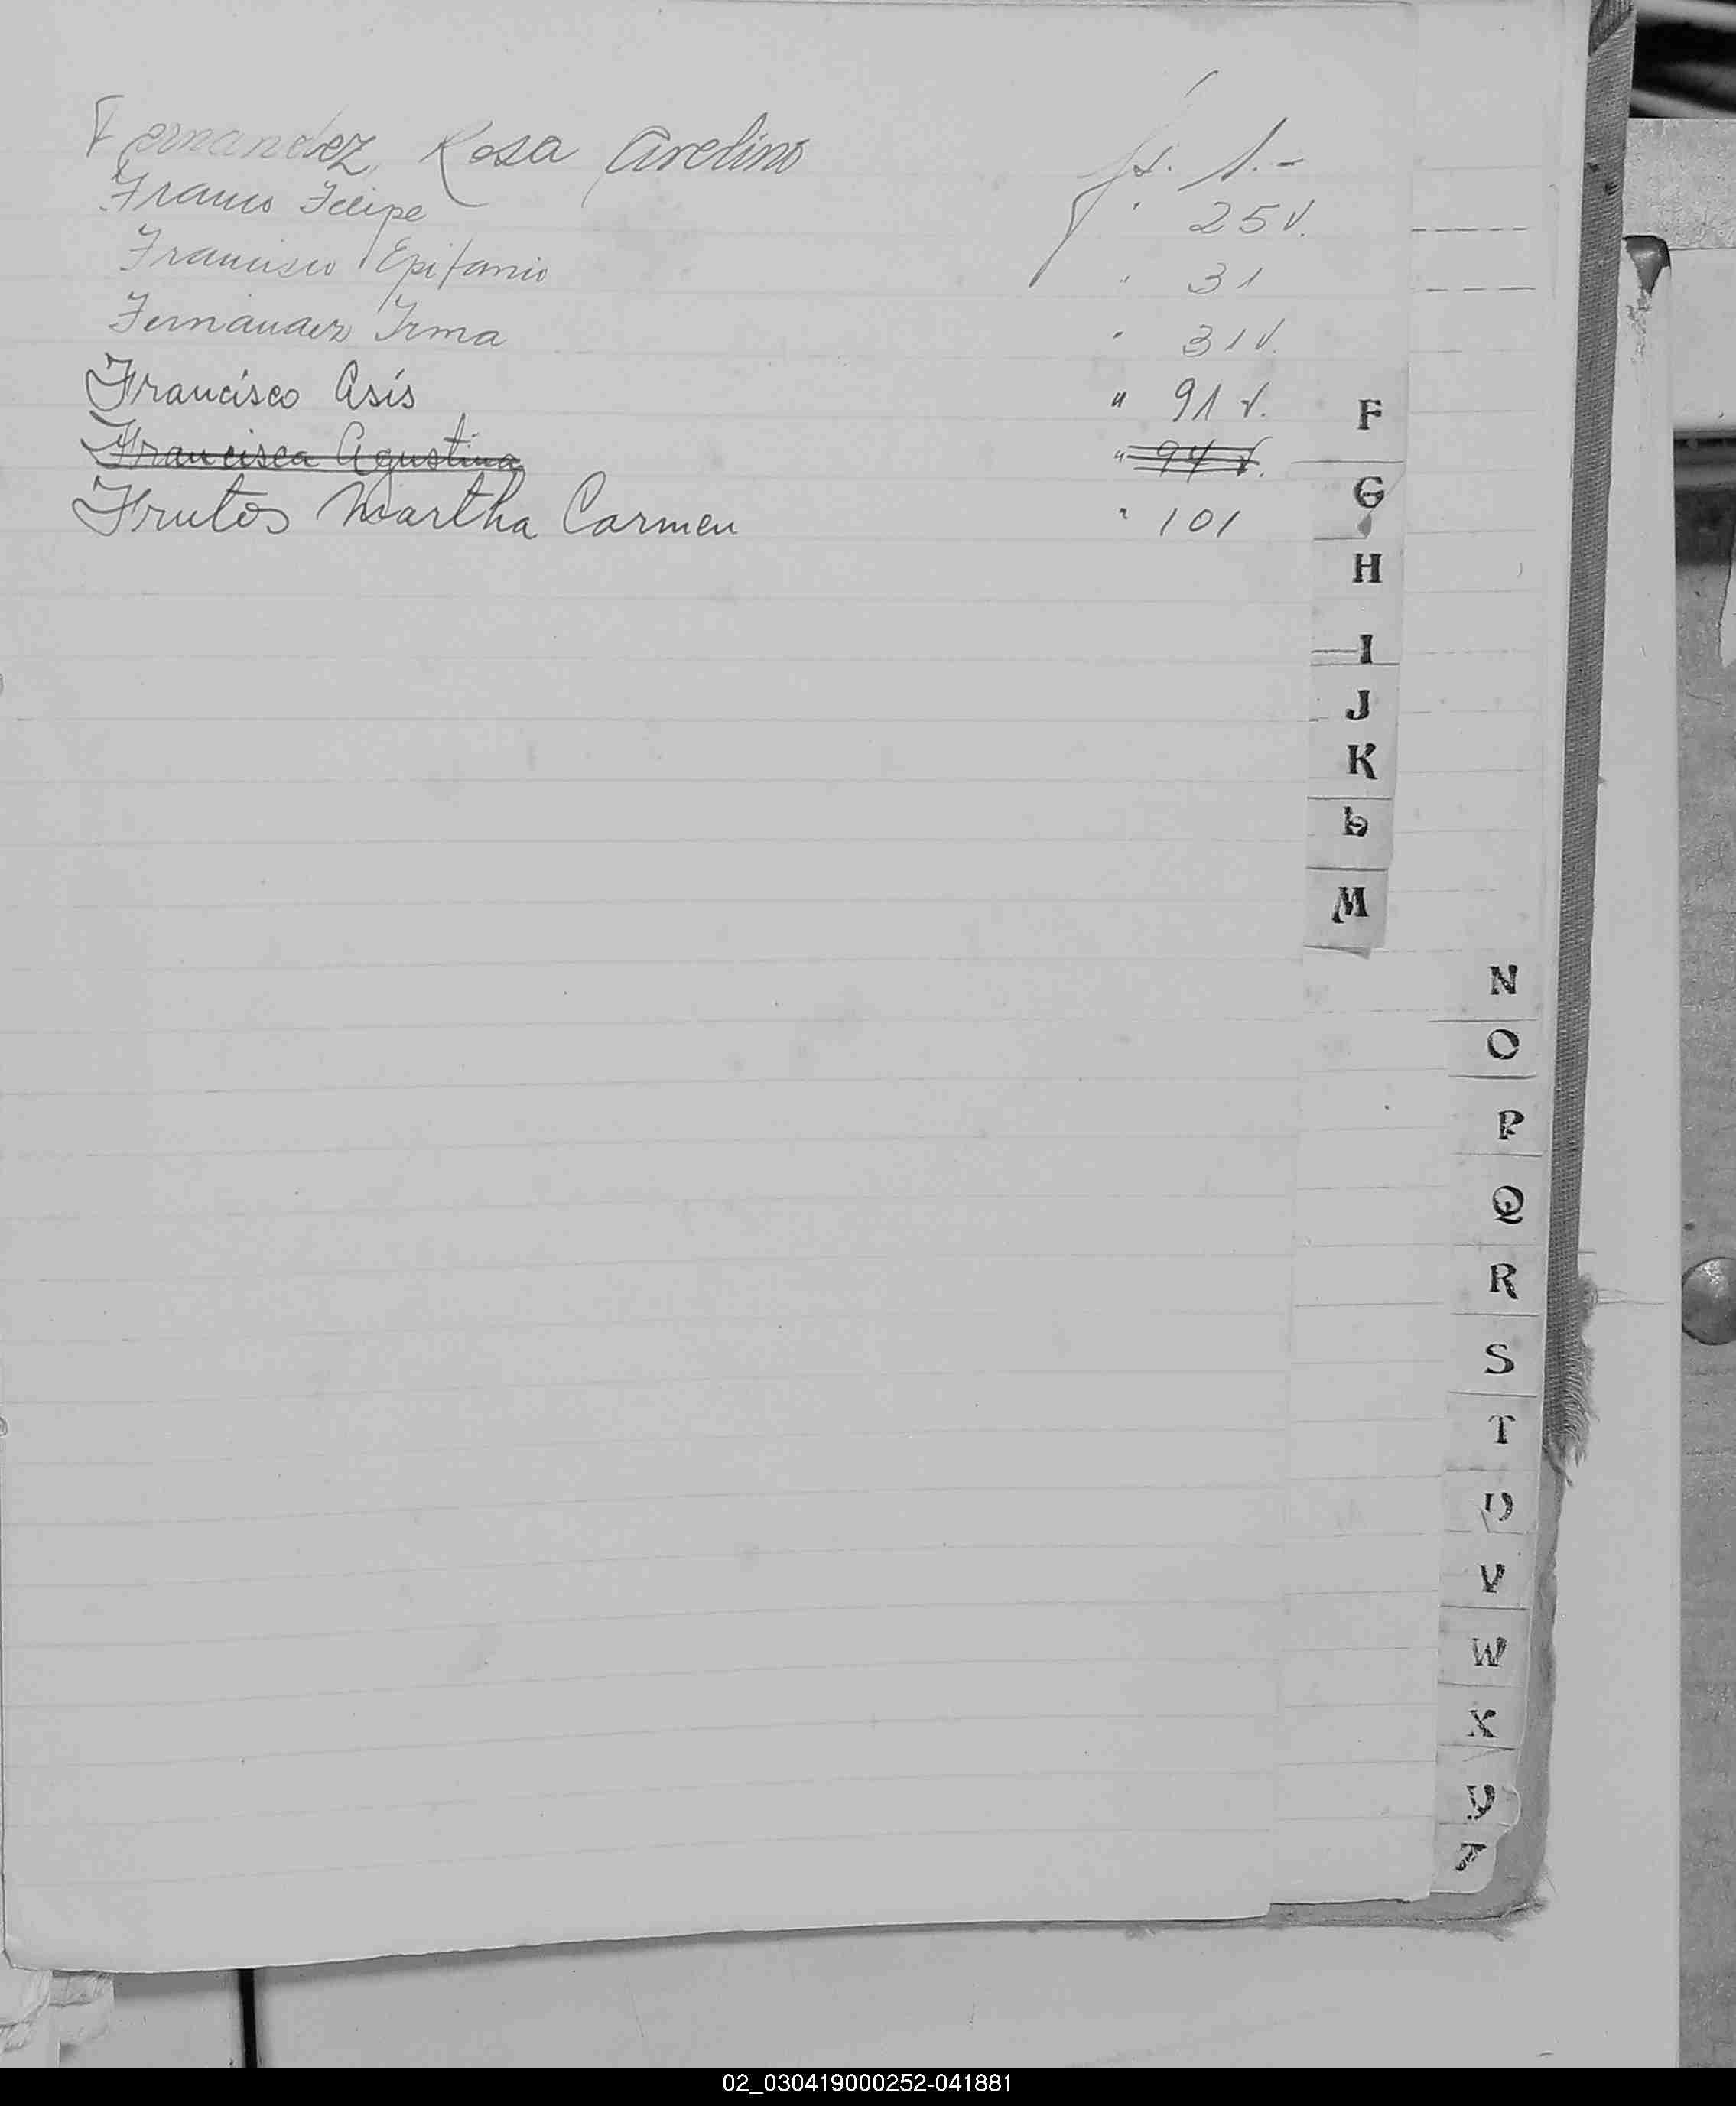 Fernandez, Rosa Avelino fs. 1.-
Franco Felipe " 25 v.
Francisco Epifanio " 31
Fernández Irma " 31 v.
Francisco Asís " 91 v.
Francisca Agustina " 94 v.
Frutos Martha Carmen " 101
F
G
H
I
J
K
L
M
N
O
P
Q
R
S
T
U
V
W
X
Y
Z
02_030419000252-041881